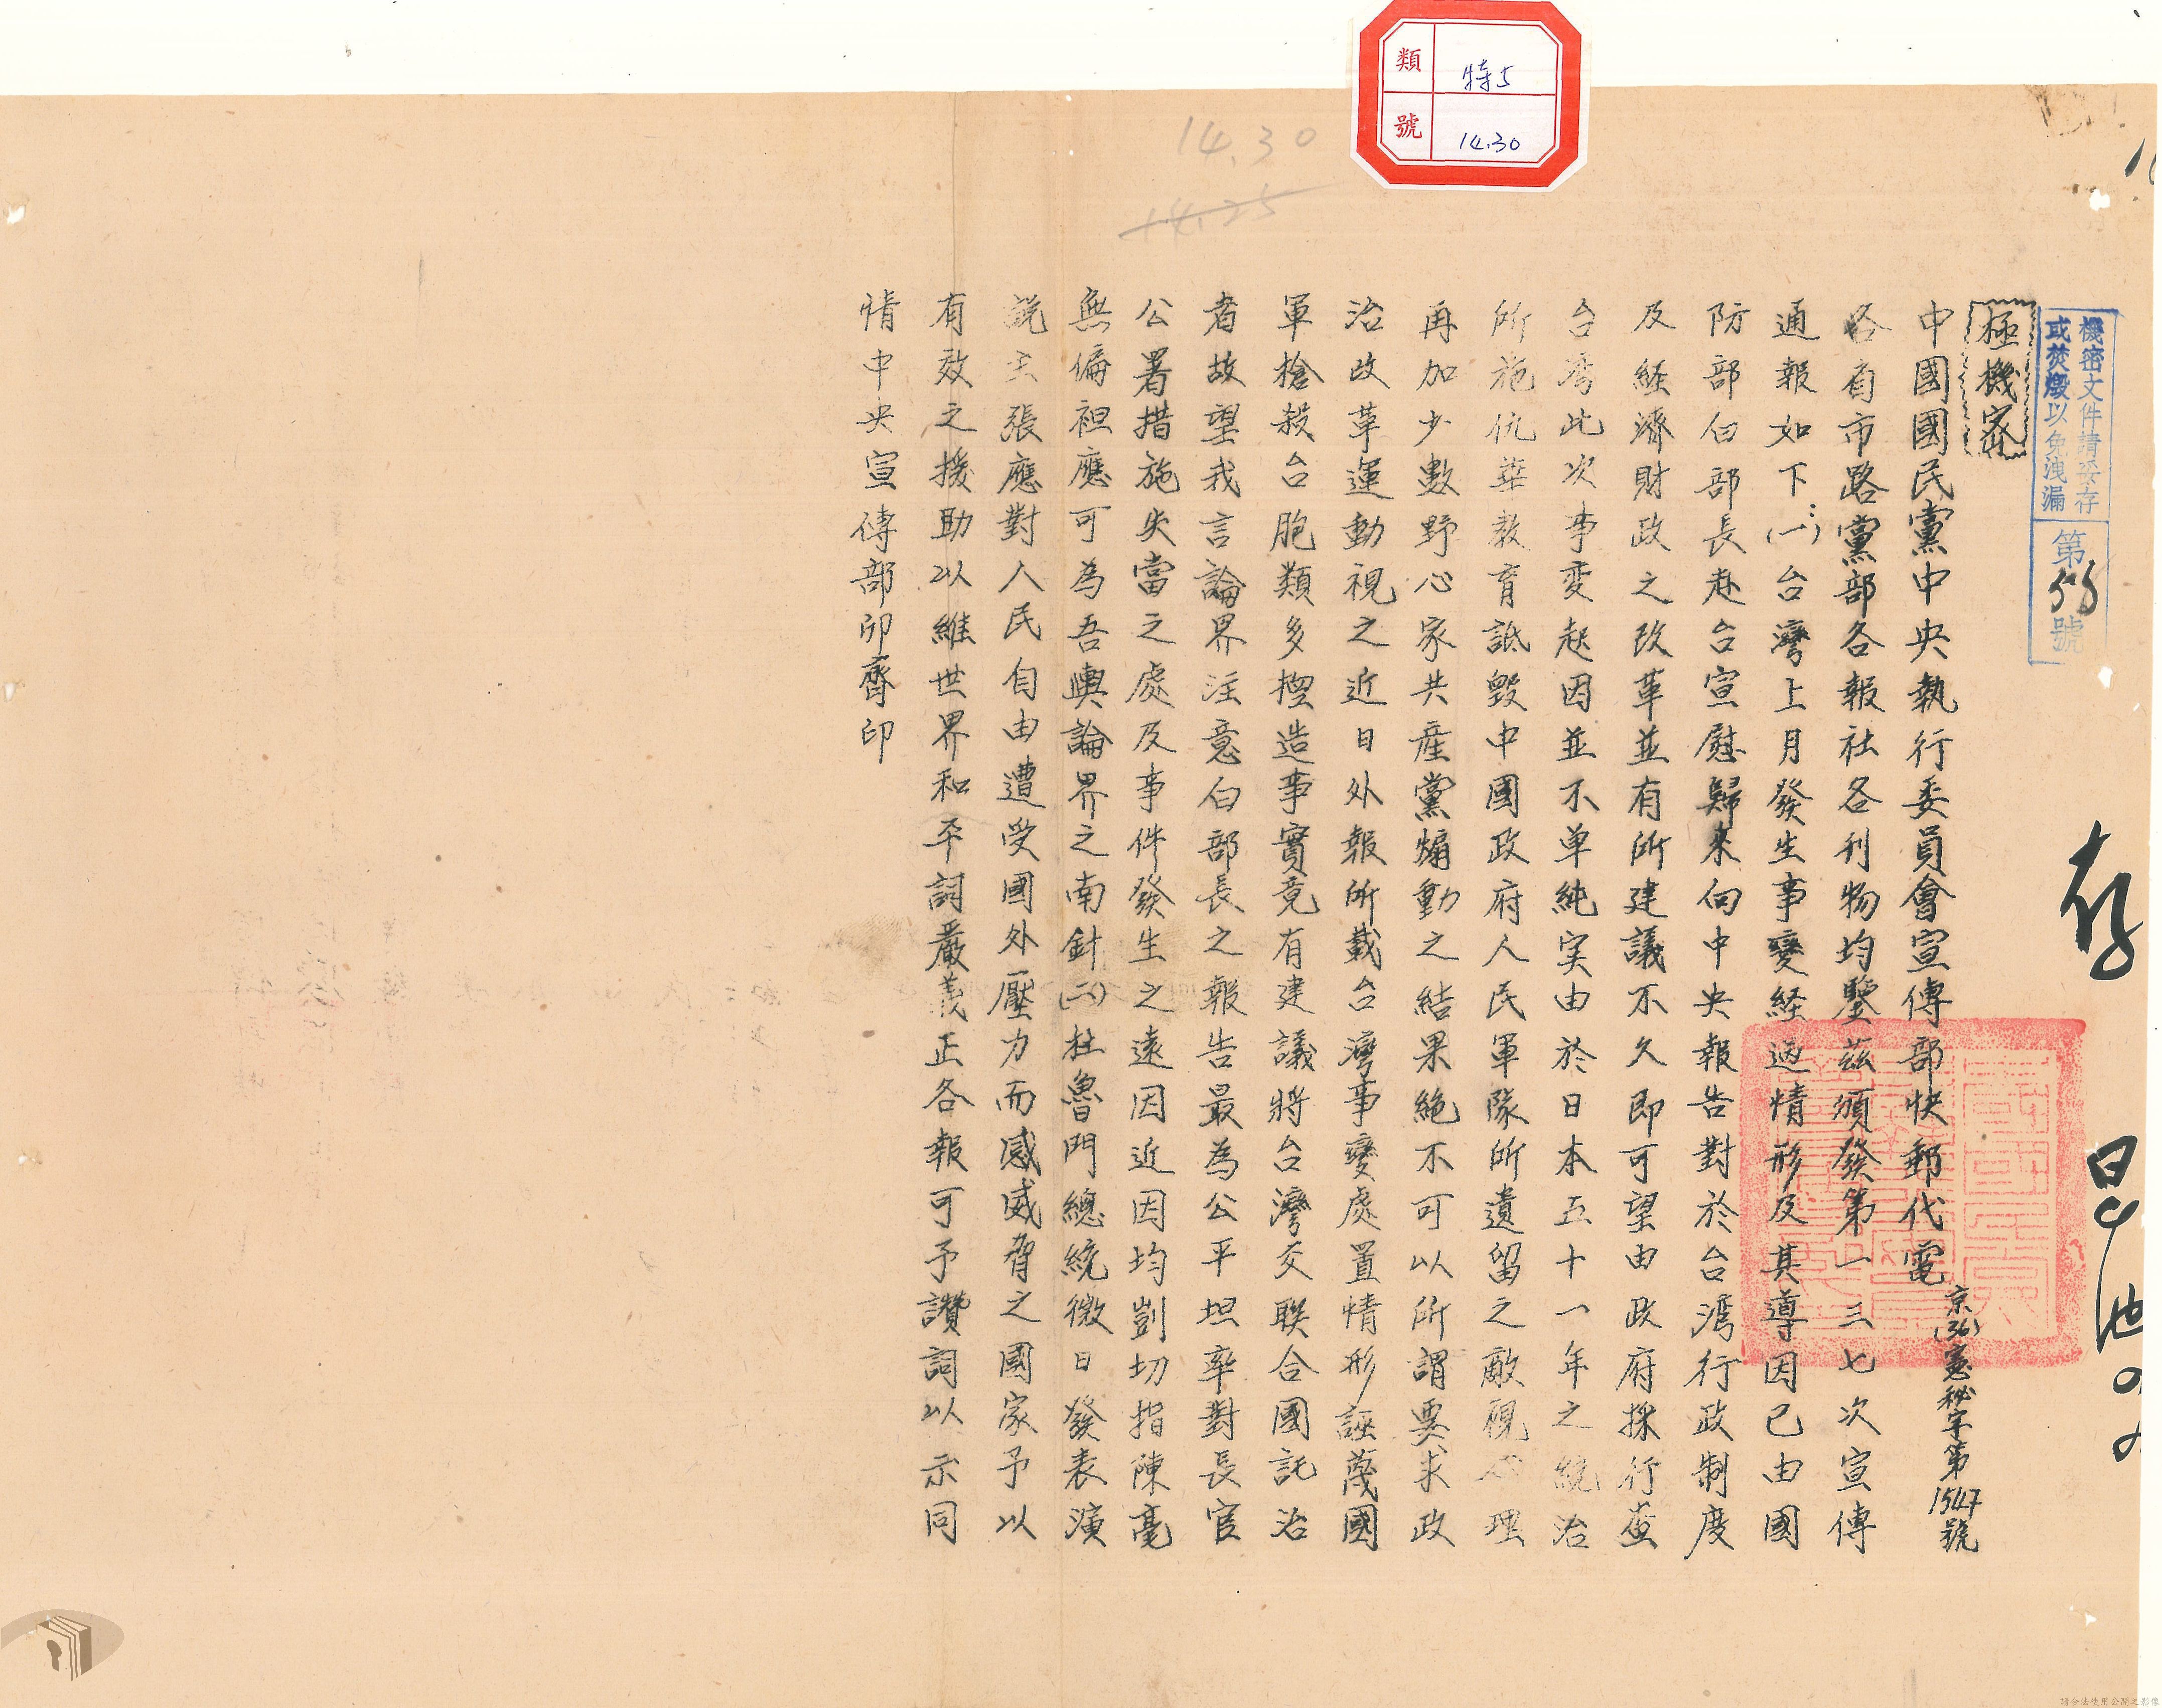 類 特5
號 14.30
14.30
14.25
機密文件請妥存
或焚燬以免洩漏
第55號
極機密
中國國民黨中央執行委員會宣傳部快郵代電
京(36)憲秘字第1547號
各省市路黨部各報社各刊物均鑒茲頒發第一三七次宣傳
通報如下:(一)台灣上月發生事變経過情形及其導因已由國
防部白部長赴台宣慰歸來向中央報告對於台湾行政制度
及経濟財政之改革並有所建議不久即可望由政府採行查
台湾此次事変起因並不单純実由於日本五十一年之統治
所施仇華教育詆毀中國政府人民軍隊所遺留之敵視心理
再加少數野心家共産黨煽動之結果絶不可以所謂要求政
治改革運動視之近日外報所載台灣事變處置情形誣蔑國
軍槍殺台胞類多揑造事實竟有建議將台灣交联合國託治
者故望我言論界注意白部長之報告最為公平坦率對長官
公署措施失當之處及事件發生之遠因近因均剴切指陳毫
無偏袒應可為吾輿論界之南針(二)杜魯門總統微日發表演
說主張應對人民自由遭受國外壓力而感威脅之國家予以
有效之援助以維世界和平詞嚴義正各報可予讚詞以示同
情中央宣傳部卯齊印
存
請合法使用公開之影像